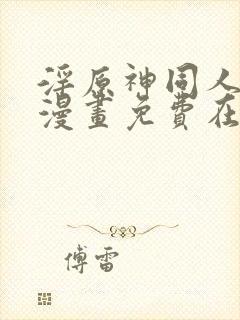 淫原神同人
漫畫免費在
傅雷